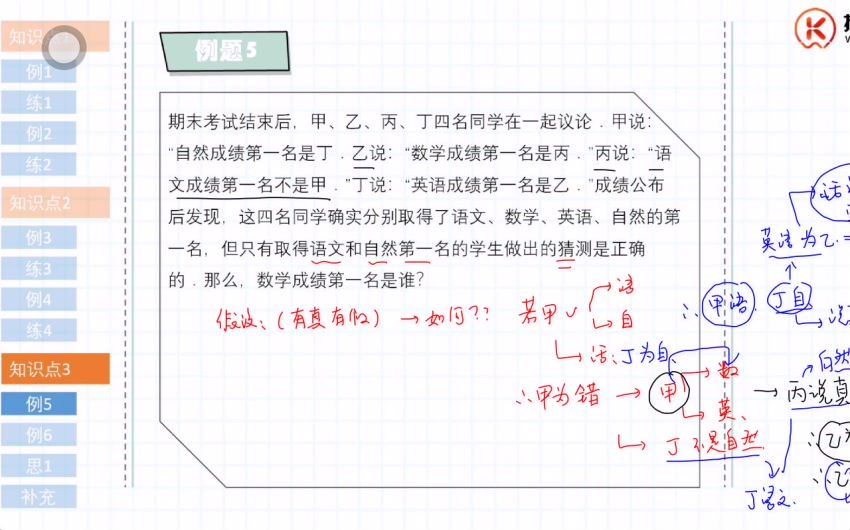 知识点
例1
练1
例2
练2
知识点2
例3
练3
例4
练4
知识点3
例5
例6
思1
补充
例题5
期末考试结束后，甲、乙、丙、丁四名同学在一起议论．甲说：
“自然成绩第一名是丁．乙说：“数学成绩第一名是丙．”丙说：“语
文成绩第一名不是甲．”丁说：“英语成绩第一名是乙．”成绩公布
后发现，这四名同学确实分别取得了语文、数学、英语、自然的第
一名，但只有取得语文和自然第一名的学生做出的猜测是正确
的．那么，数学成绩第一名是谁？
假设：（有真有假）→如何??
若甲✓
语
自
话：丁为自、
∴甲为错 → 甲
数
英、
丁不是自然
→ 丙说真
丁语文.
∴甲语.
丁自
英语为乙.
自然
K